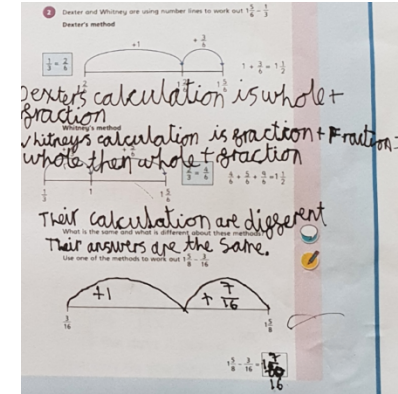 2 Dexter and Whitney are using number lines to work out 1 5/6 - 1/3
Dexter's method
+1
+ 3/6
1/3 = 2/6
1 + 3/6 = 1 1/2
1 5/6
Dexter's calculation is whole +
fraction
Whitney's method
Whitneys calculation is fraction + Fraction =
whole then whole + fraction
2/3 = 4/6
4/6 + 5/6 + 9/6 = 1 1/2
1/3
1
1 5/6
Their calculation are different
What is the same and what is different about these methods?
Their answers are the same.
Use one of the methods to work out 1 5/8 - 3/16
+1
+ 7/16
3/16
1 5/8
1 5/8 - 3/16 =